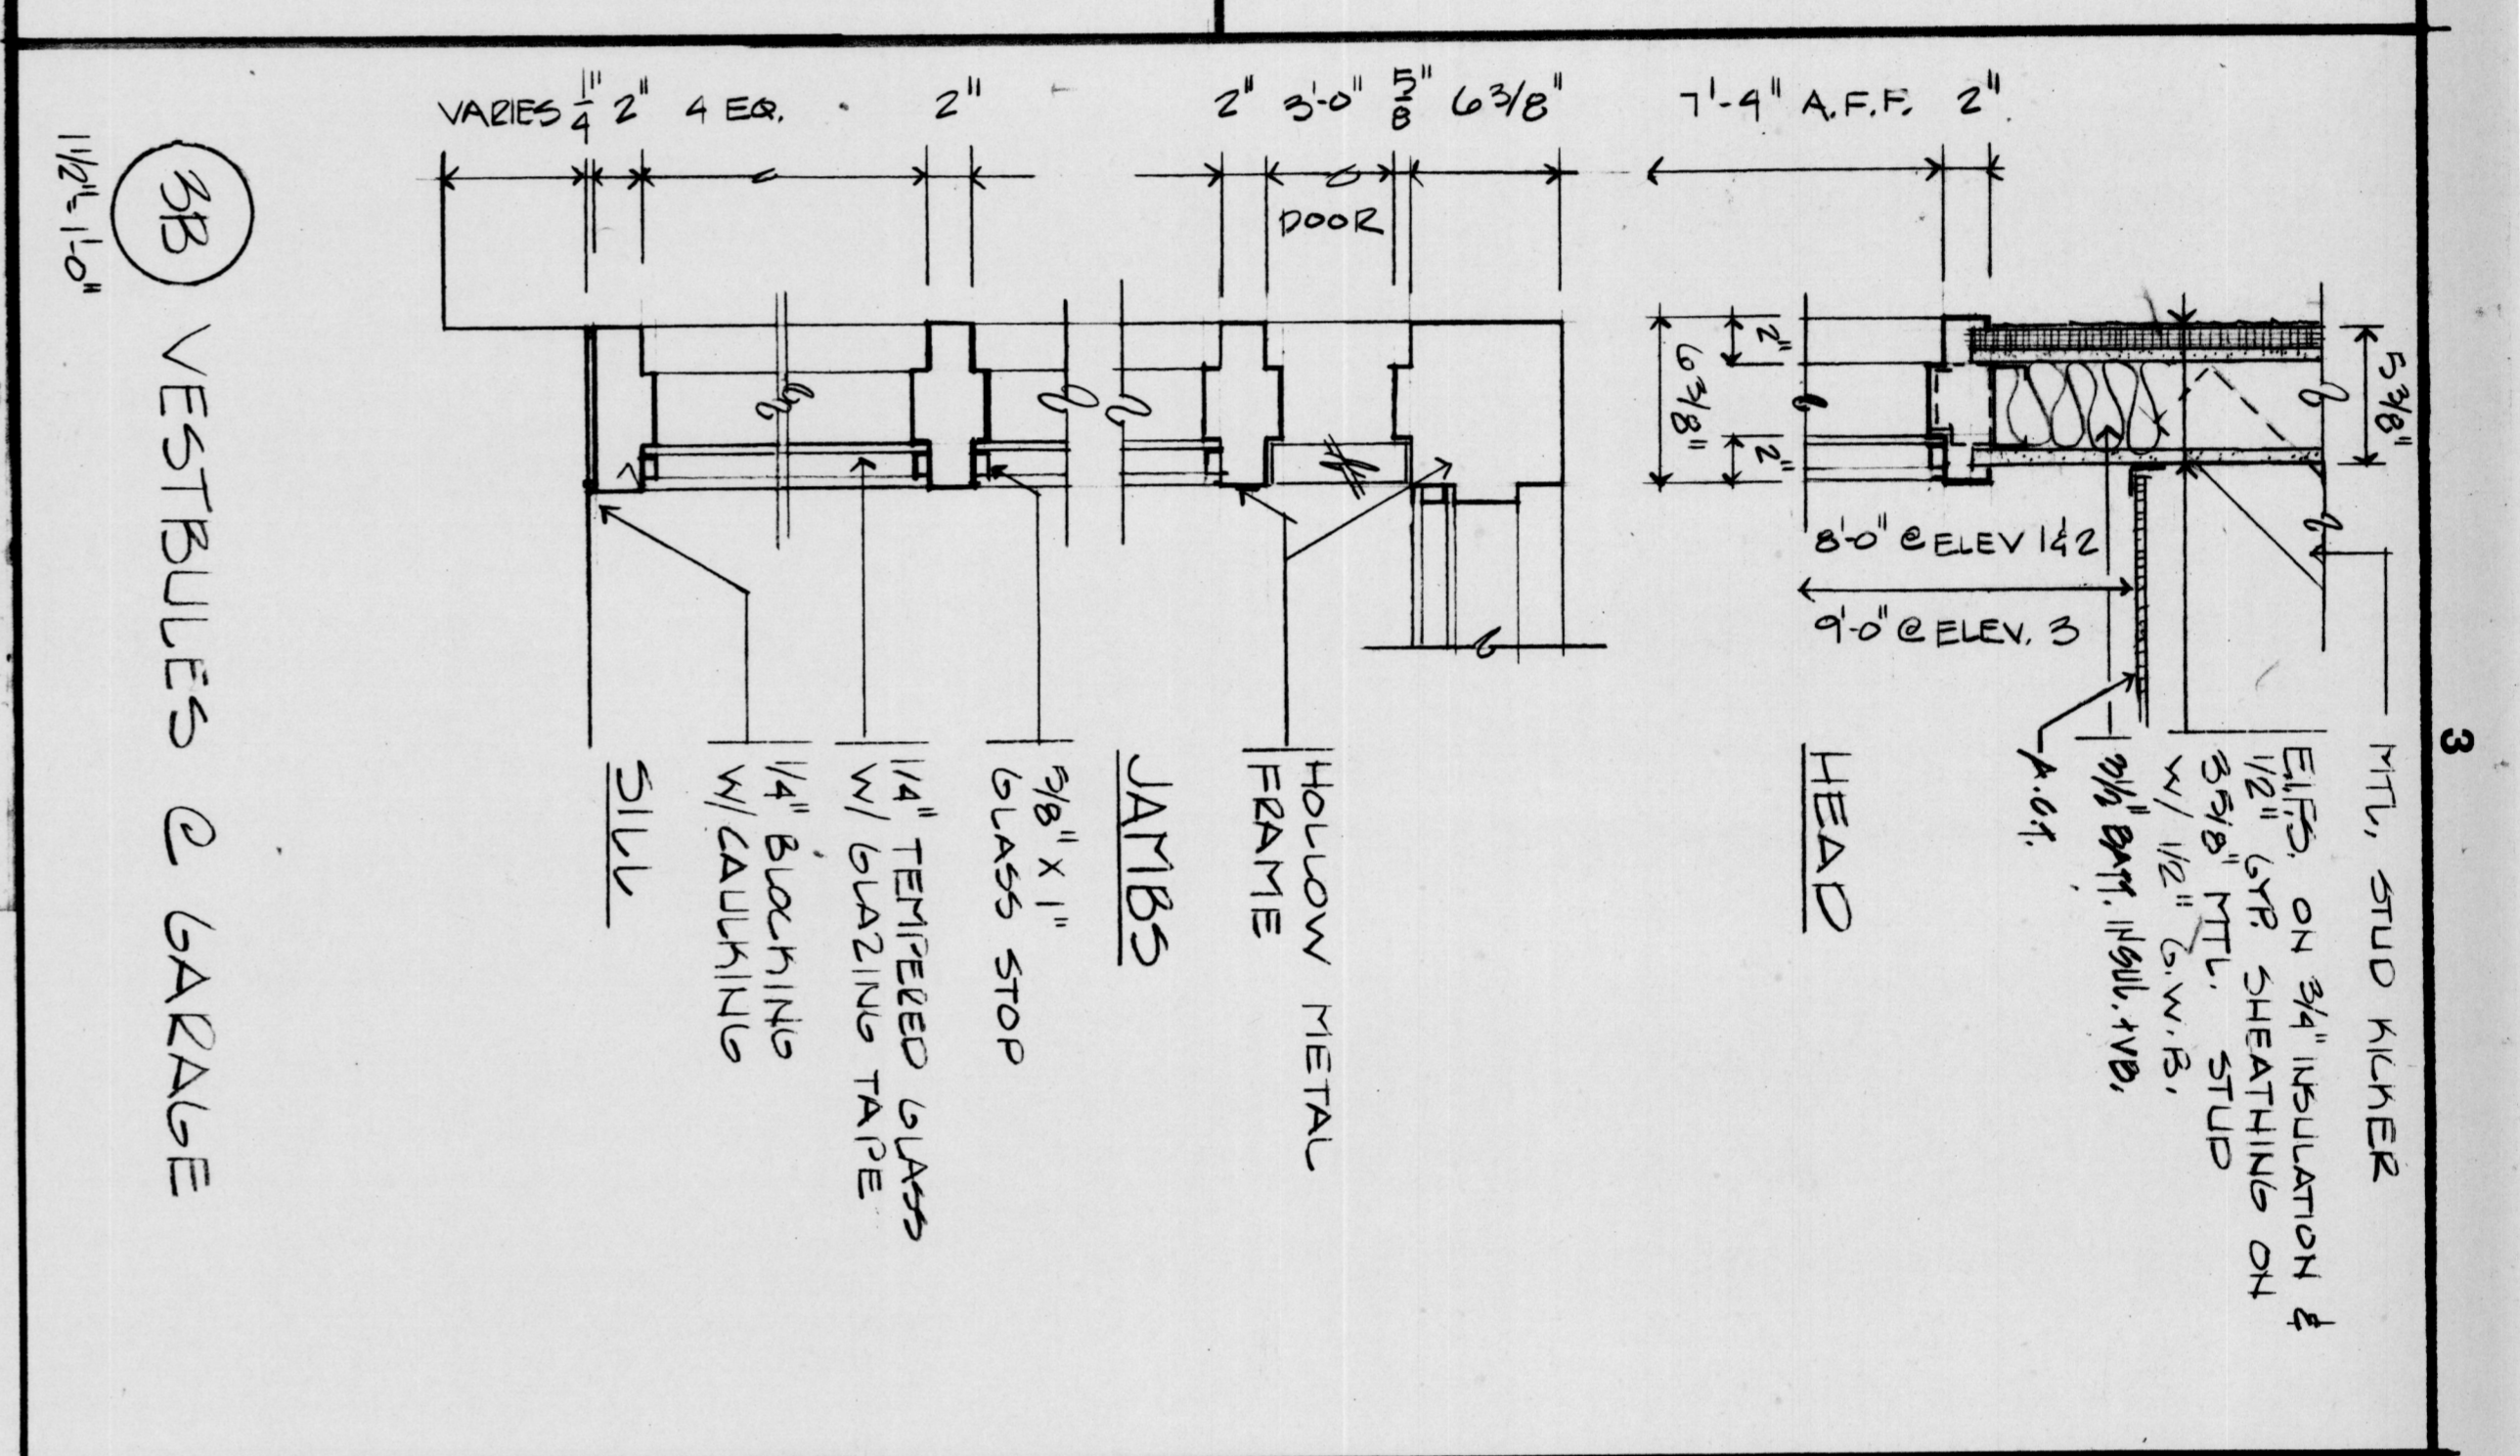 VARIES 1/4" 2" 4 EQ. 2" 2" 3'-0" 5/8" 6 3/8" 7'-4" A.F.F. 2"
DOOR
5 3/8"
2"
6 3/8"
2"
8'-0" @ ELEV 1 & 2
9'-0" @ ELEV. 3
3
MTL. STUD KICKER
E.I.F.S. ON 3/4" INSULATION &
1/2" GYP. SHEATHING ON
3 5/8" MTL. STUD
W/ 1/2" G.W.B.
3 1/2" BATT. INSUL. + VB.
A.C.T.
HEAD
HOLLOW METAL
FRAME
JAMBS
5/8" X 1"
GLASS STOP
1/4" TEMPERED GLASS
W/ GLAZING TAPE
1/4" BLOCKING
W/ CAULKING
SILL
3B VESTBULES @ GARAGE
1 1/2" = 1'-0"